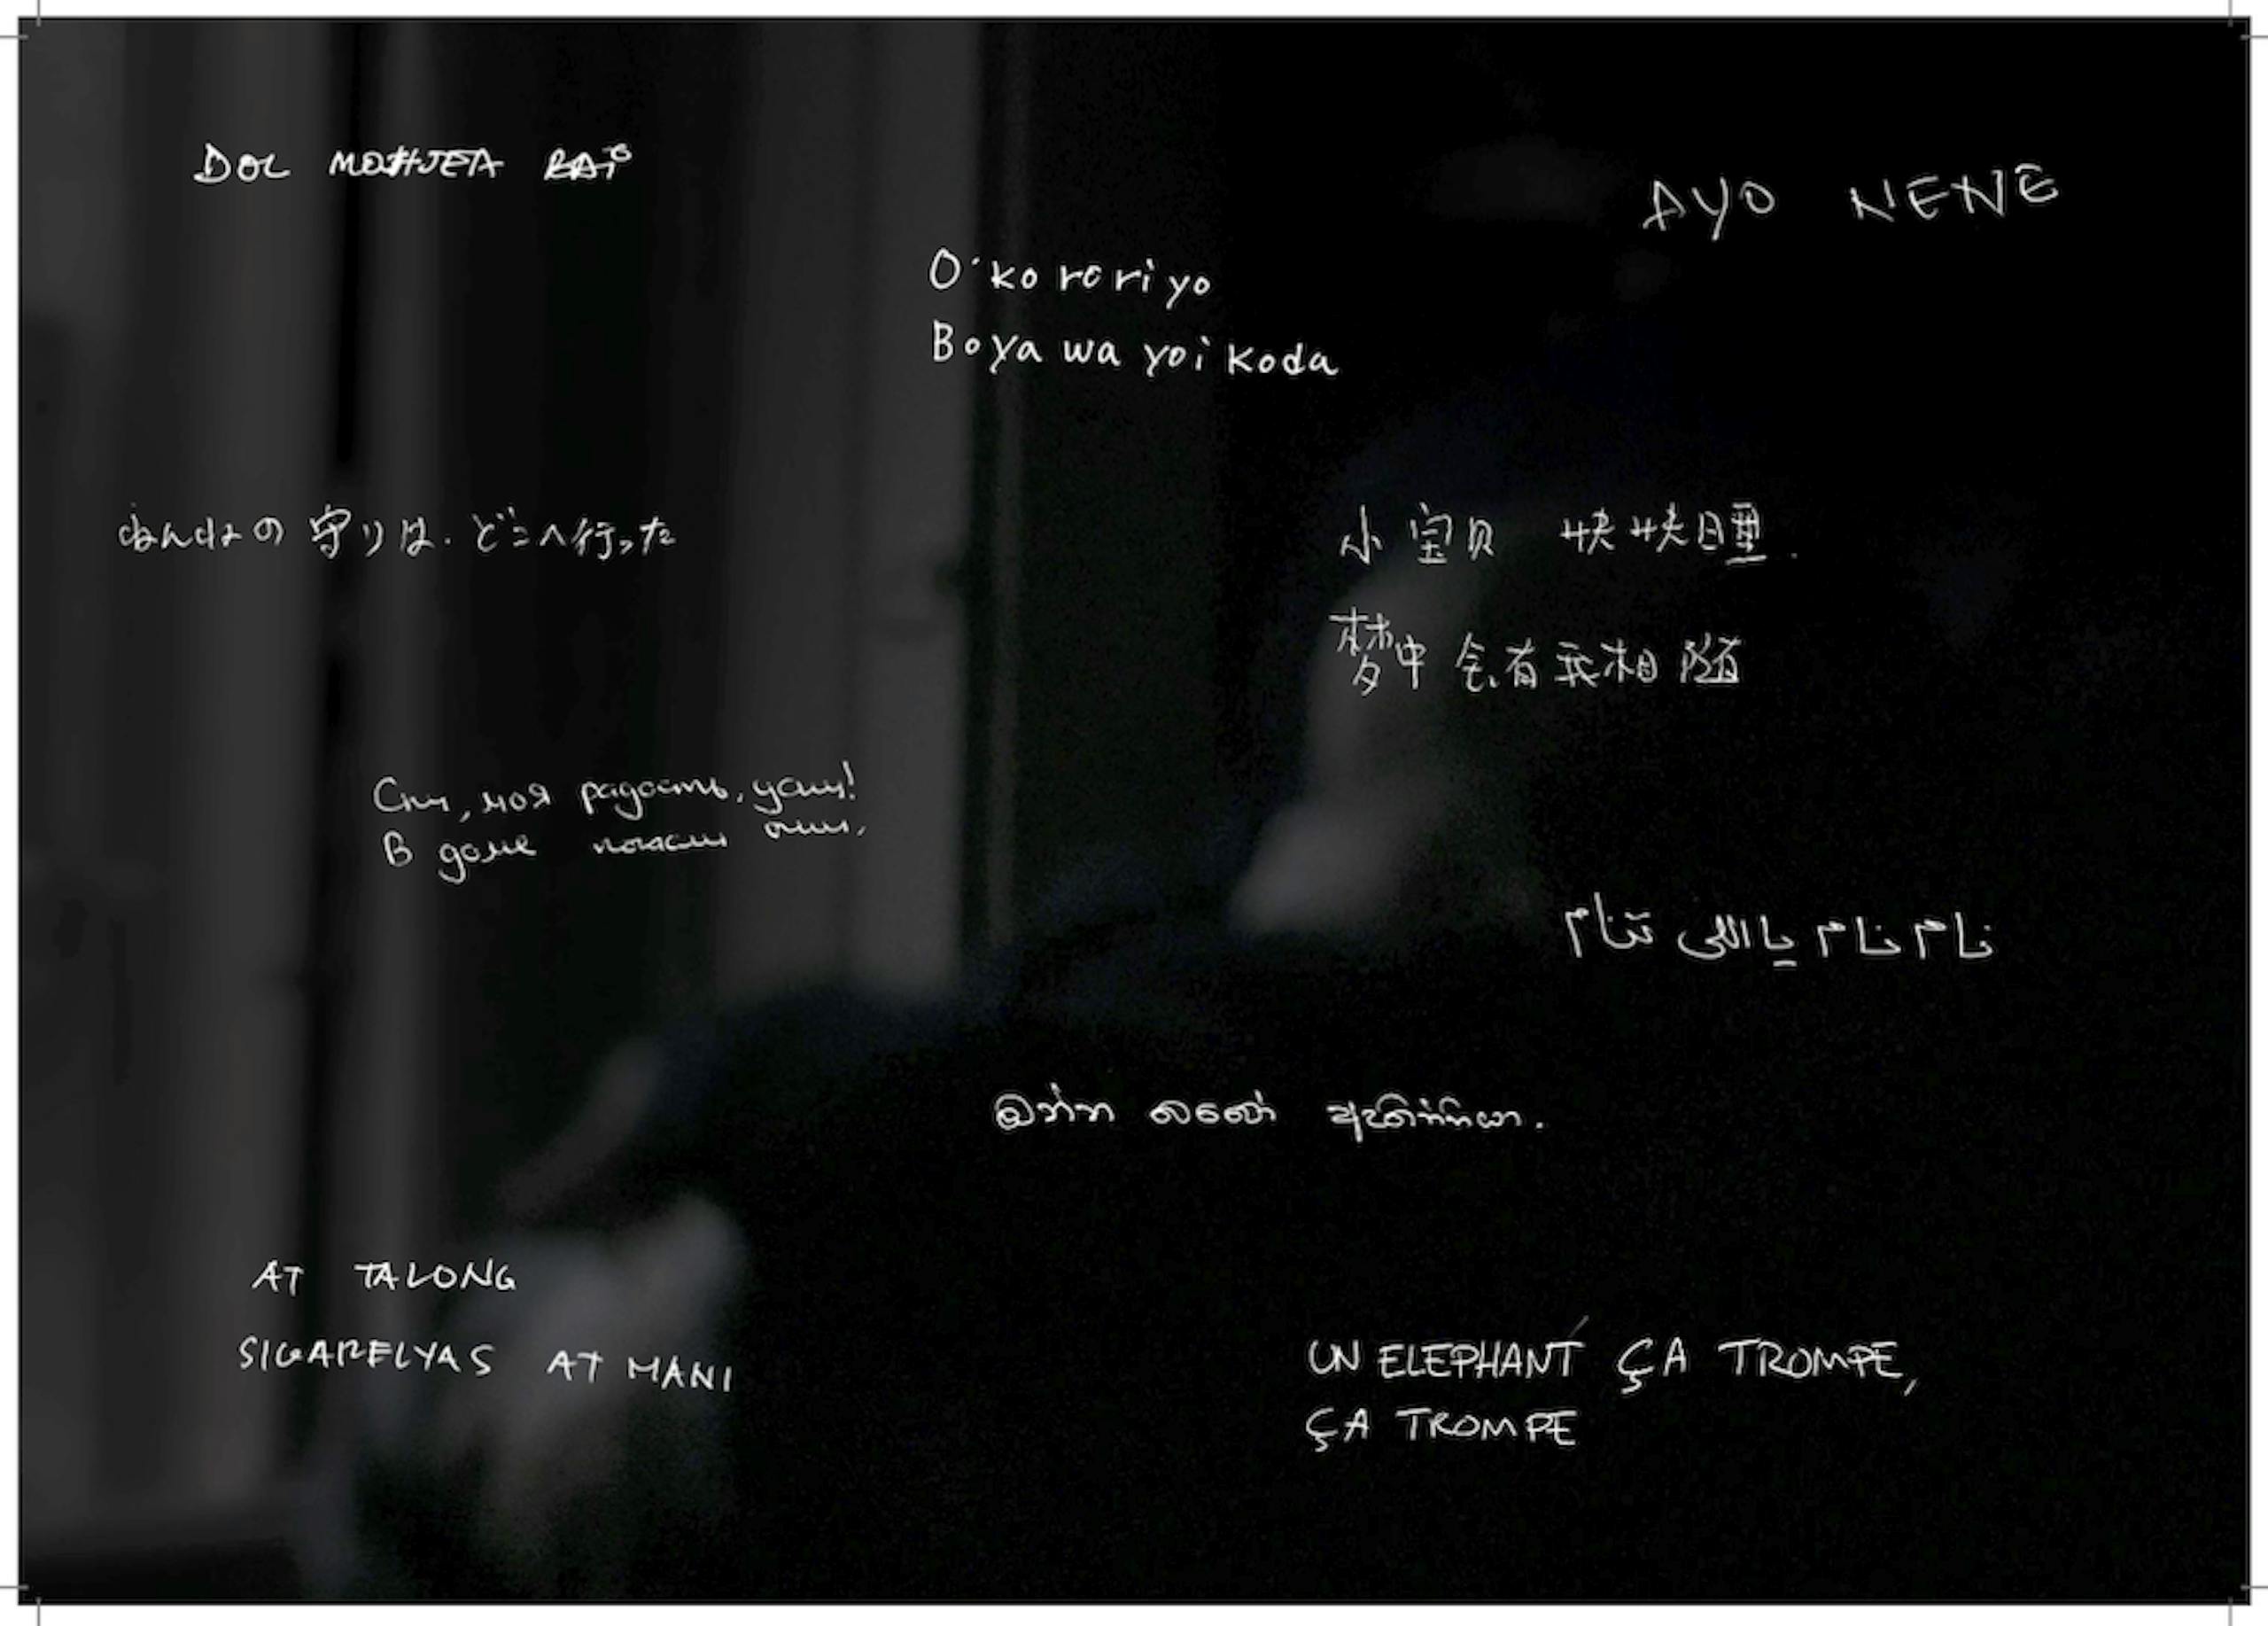 DOL
AYO NENE
O'ko rori yo
Boya wa yoi koda
守りは、どこへ行った
小宝贝 快快睡.
梦中会有我相随
Спи, моя радость, усни!
В доме погасли огни,
نام نام يا اللي تنام
AT TALONG
SIGARELYAS AT MANI
UN ELEPHANT ÇA TROMPE,
ÇA TROMPE